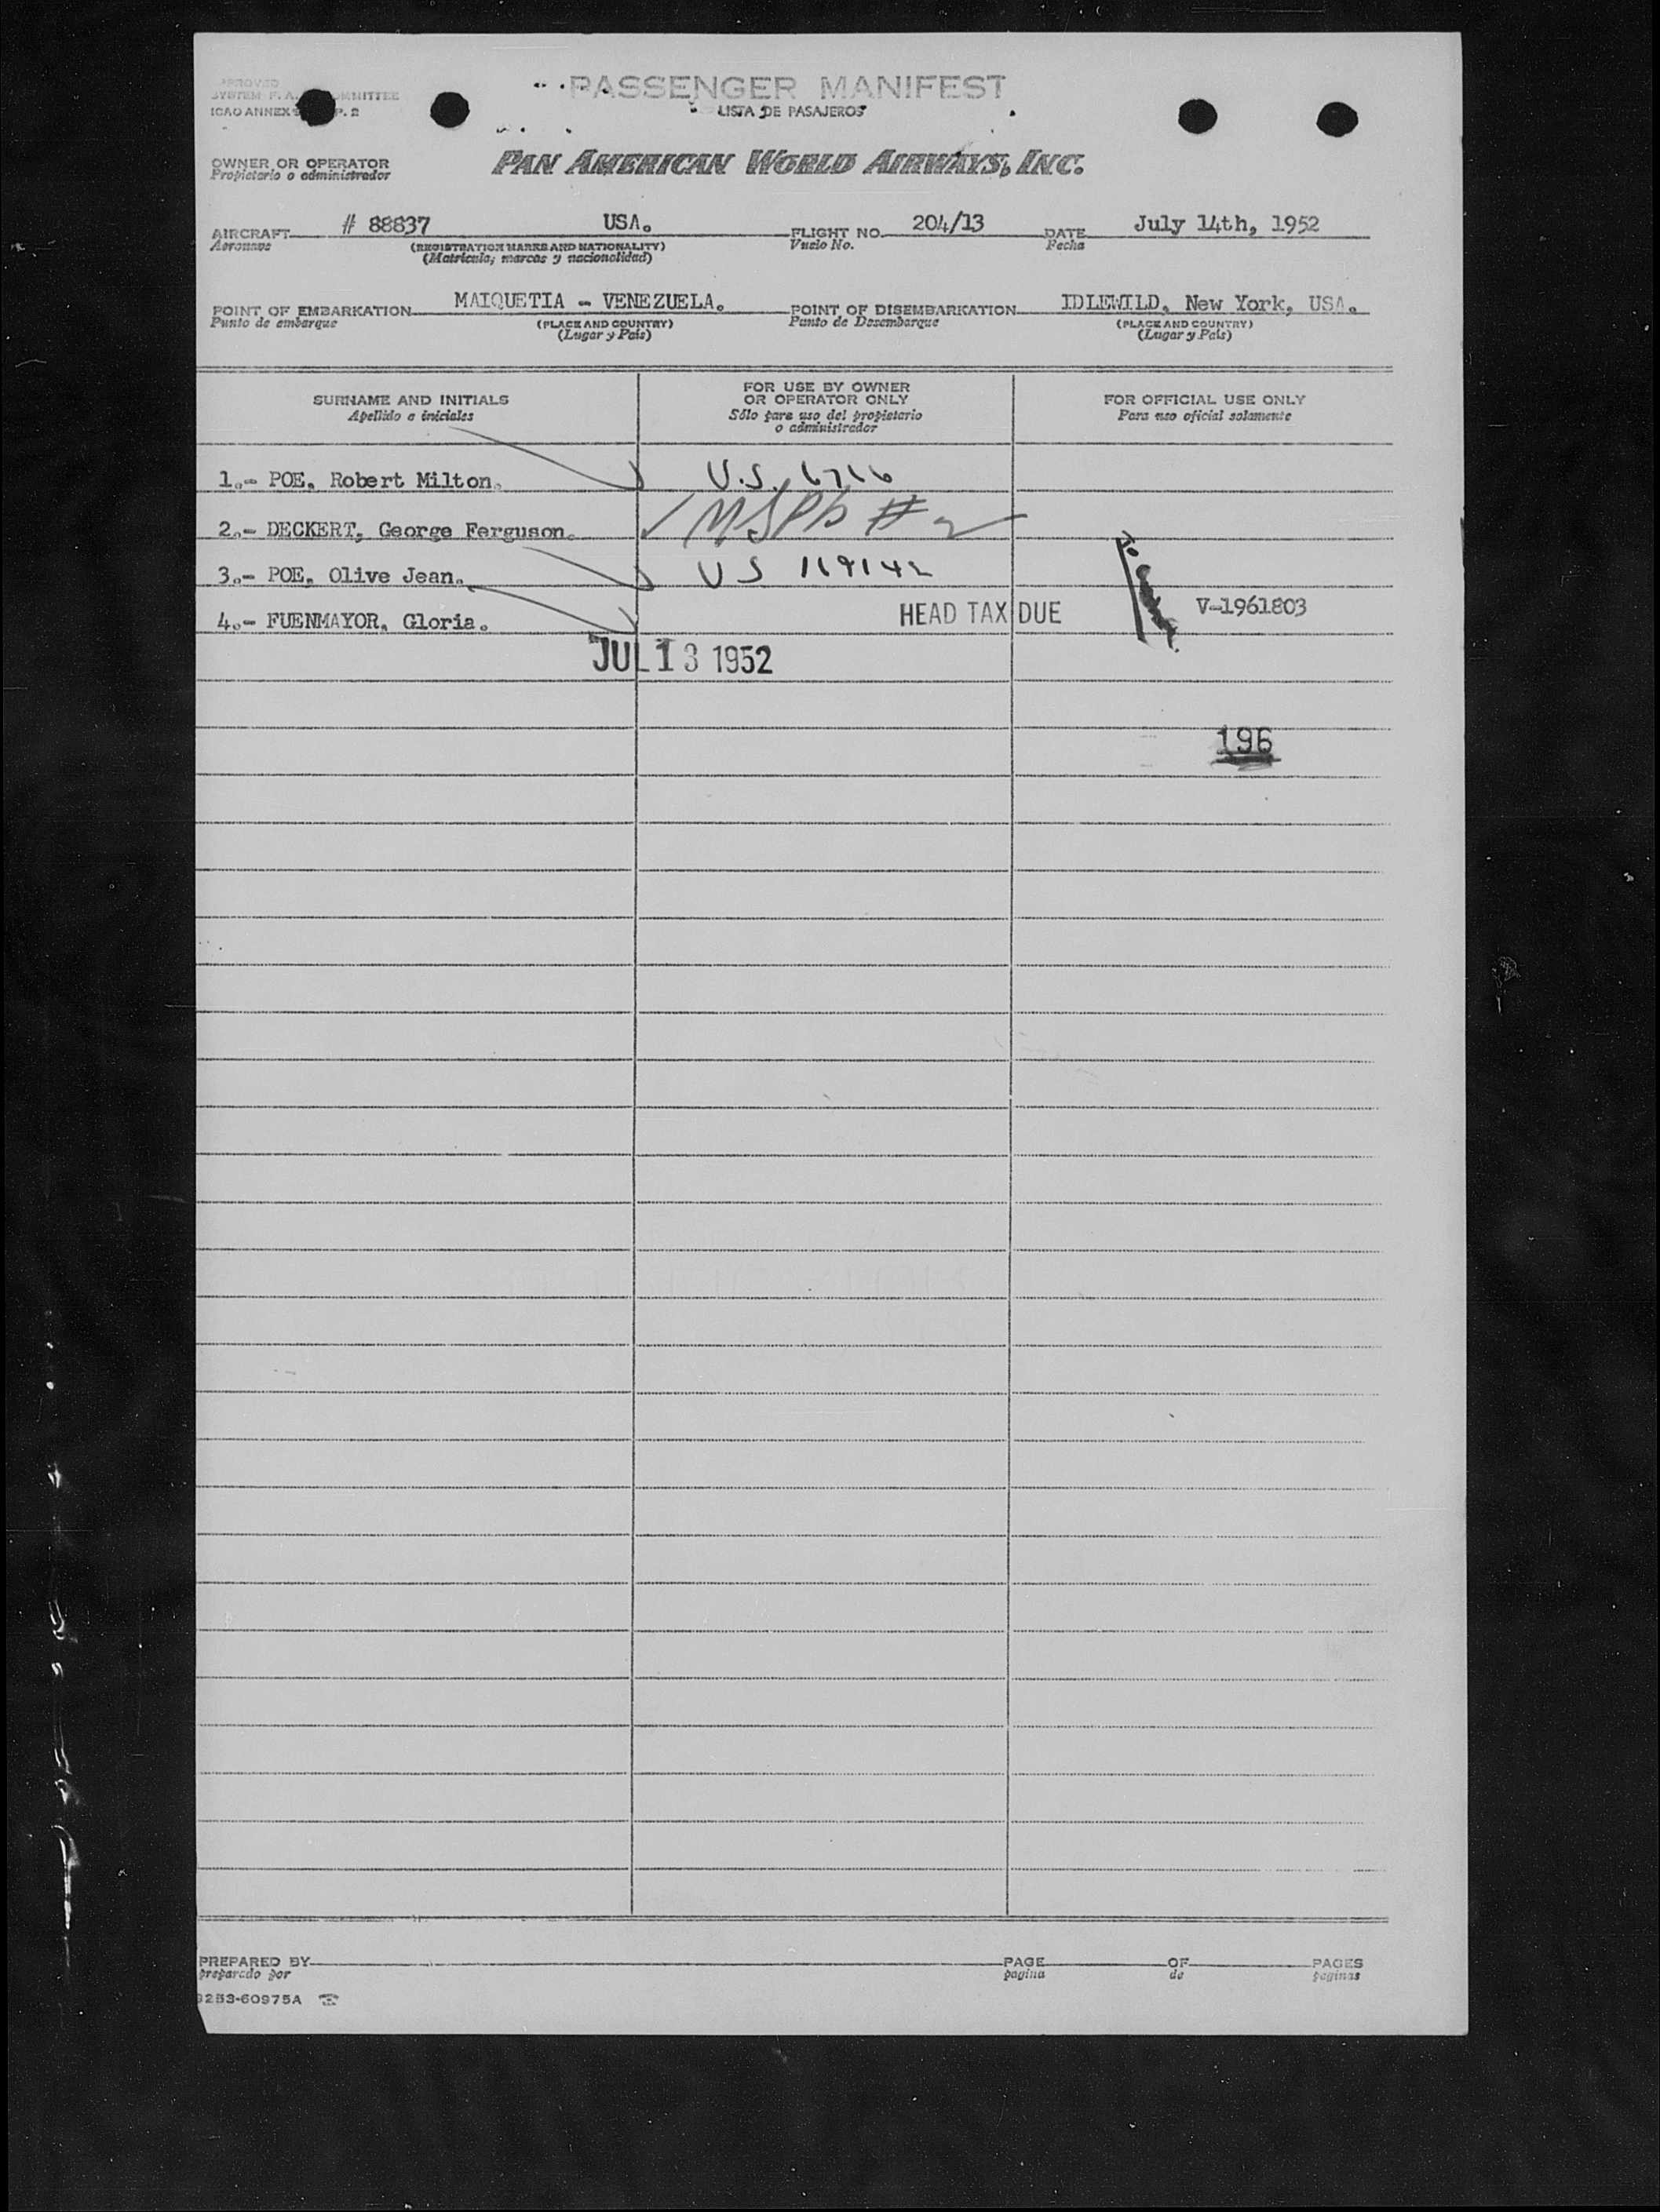 PASSENGER MANIFEST
LISTA DE PASAJEROS
APPROVED
SYSTEM F. A. COMMITTEE
ICAO ANNEX P. 2
OWNER OR OPERATOR
Propietario o administrador
PAN AMERICAN WORLD AIRWAYS, INC.
AIRCRAFT # 88837 USA. FLIGHT NO. 204/13 DATE July 14th, 1952
Aeronave (REGISTRATION MARKS AND NATIONALITY) Vuelo No. Fecha
(Matrícula; marcas y nacionalidad)
POINT OF EMBARKATION MAIQUETIA - VENEZUELA. POINT OF DISEMBARKATION IDLEWILD, New York, USA.
Punto de embarque (PLACE AND COUNTRY) Punto de Desembarque (PLACE AND COUNTRY)
(Lugar y País) (Lugar y País)
SURNAME AND INITIALS
Apellido e iniciales
FOR USE BY OWNER
OR OPERATOR ONLY
Sólo para uso del propietario
o administrador
FOR OFFICIAL USE ONLY
Para uso oficial solamente
1.- POE, Robert Milton. U.S. 6716
2.- DECKERT, George Ferguson. #2
3.- POE, Olive Jean. US 119142
4.- FUENMAYOR, Gloria. HEAD TAX DUE V-1961803
JUL 13 1952
196
PREPARED BY PAGE OF PAGES
preparado por pagina de paginas
9253-60975A